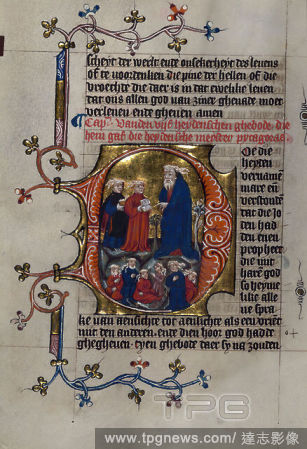 scheyt der werelt ende onsekerheyt des levens
of te voordenken die pine der hellen of die
vroechde die daer is in dat ewelike leven
dat ons allen god van ziner ghenade moet
verlenen ende gheven amen
Van den vijf heydenschen ghebode die
hem gaf die heydensche meester pytagoras
Oe die
heyden
vernamē
mare eñ
verstont
dat die Jo
den had
den enen
prophete
die mit
god
so heyme
like alle
ne spra
ke van aensichte tot aensichte als een vrient
mit den anderen ende dien hoer god hadde
ghegheven tyen ghebode daer sy na zouden
TPG
www.tpgnews.com / 達志影像